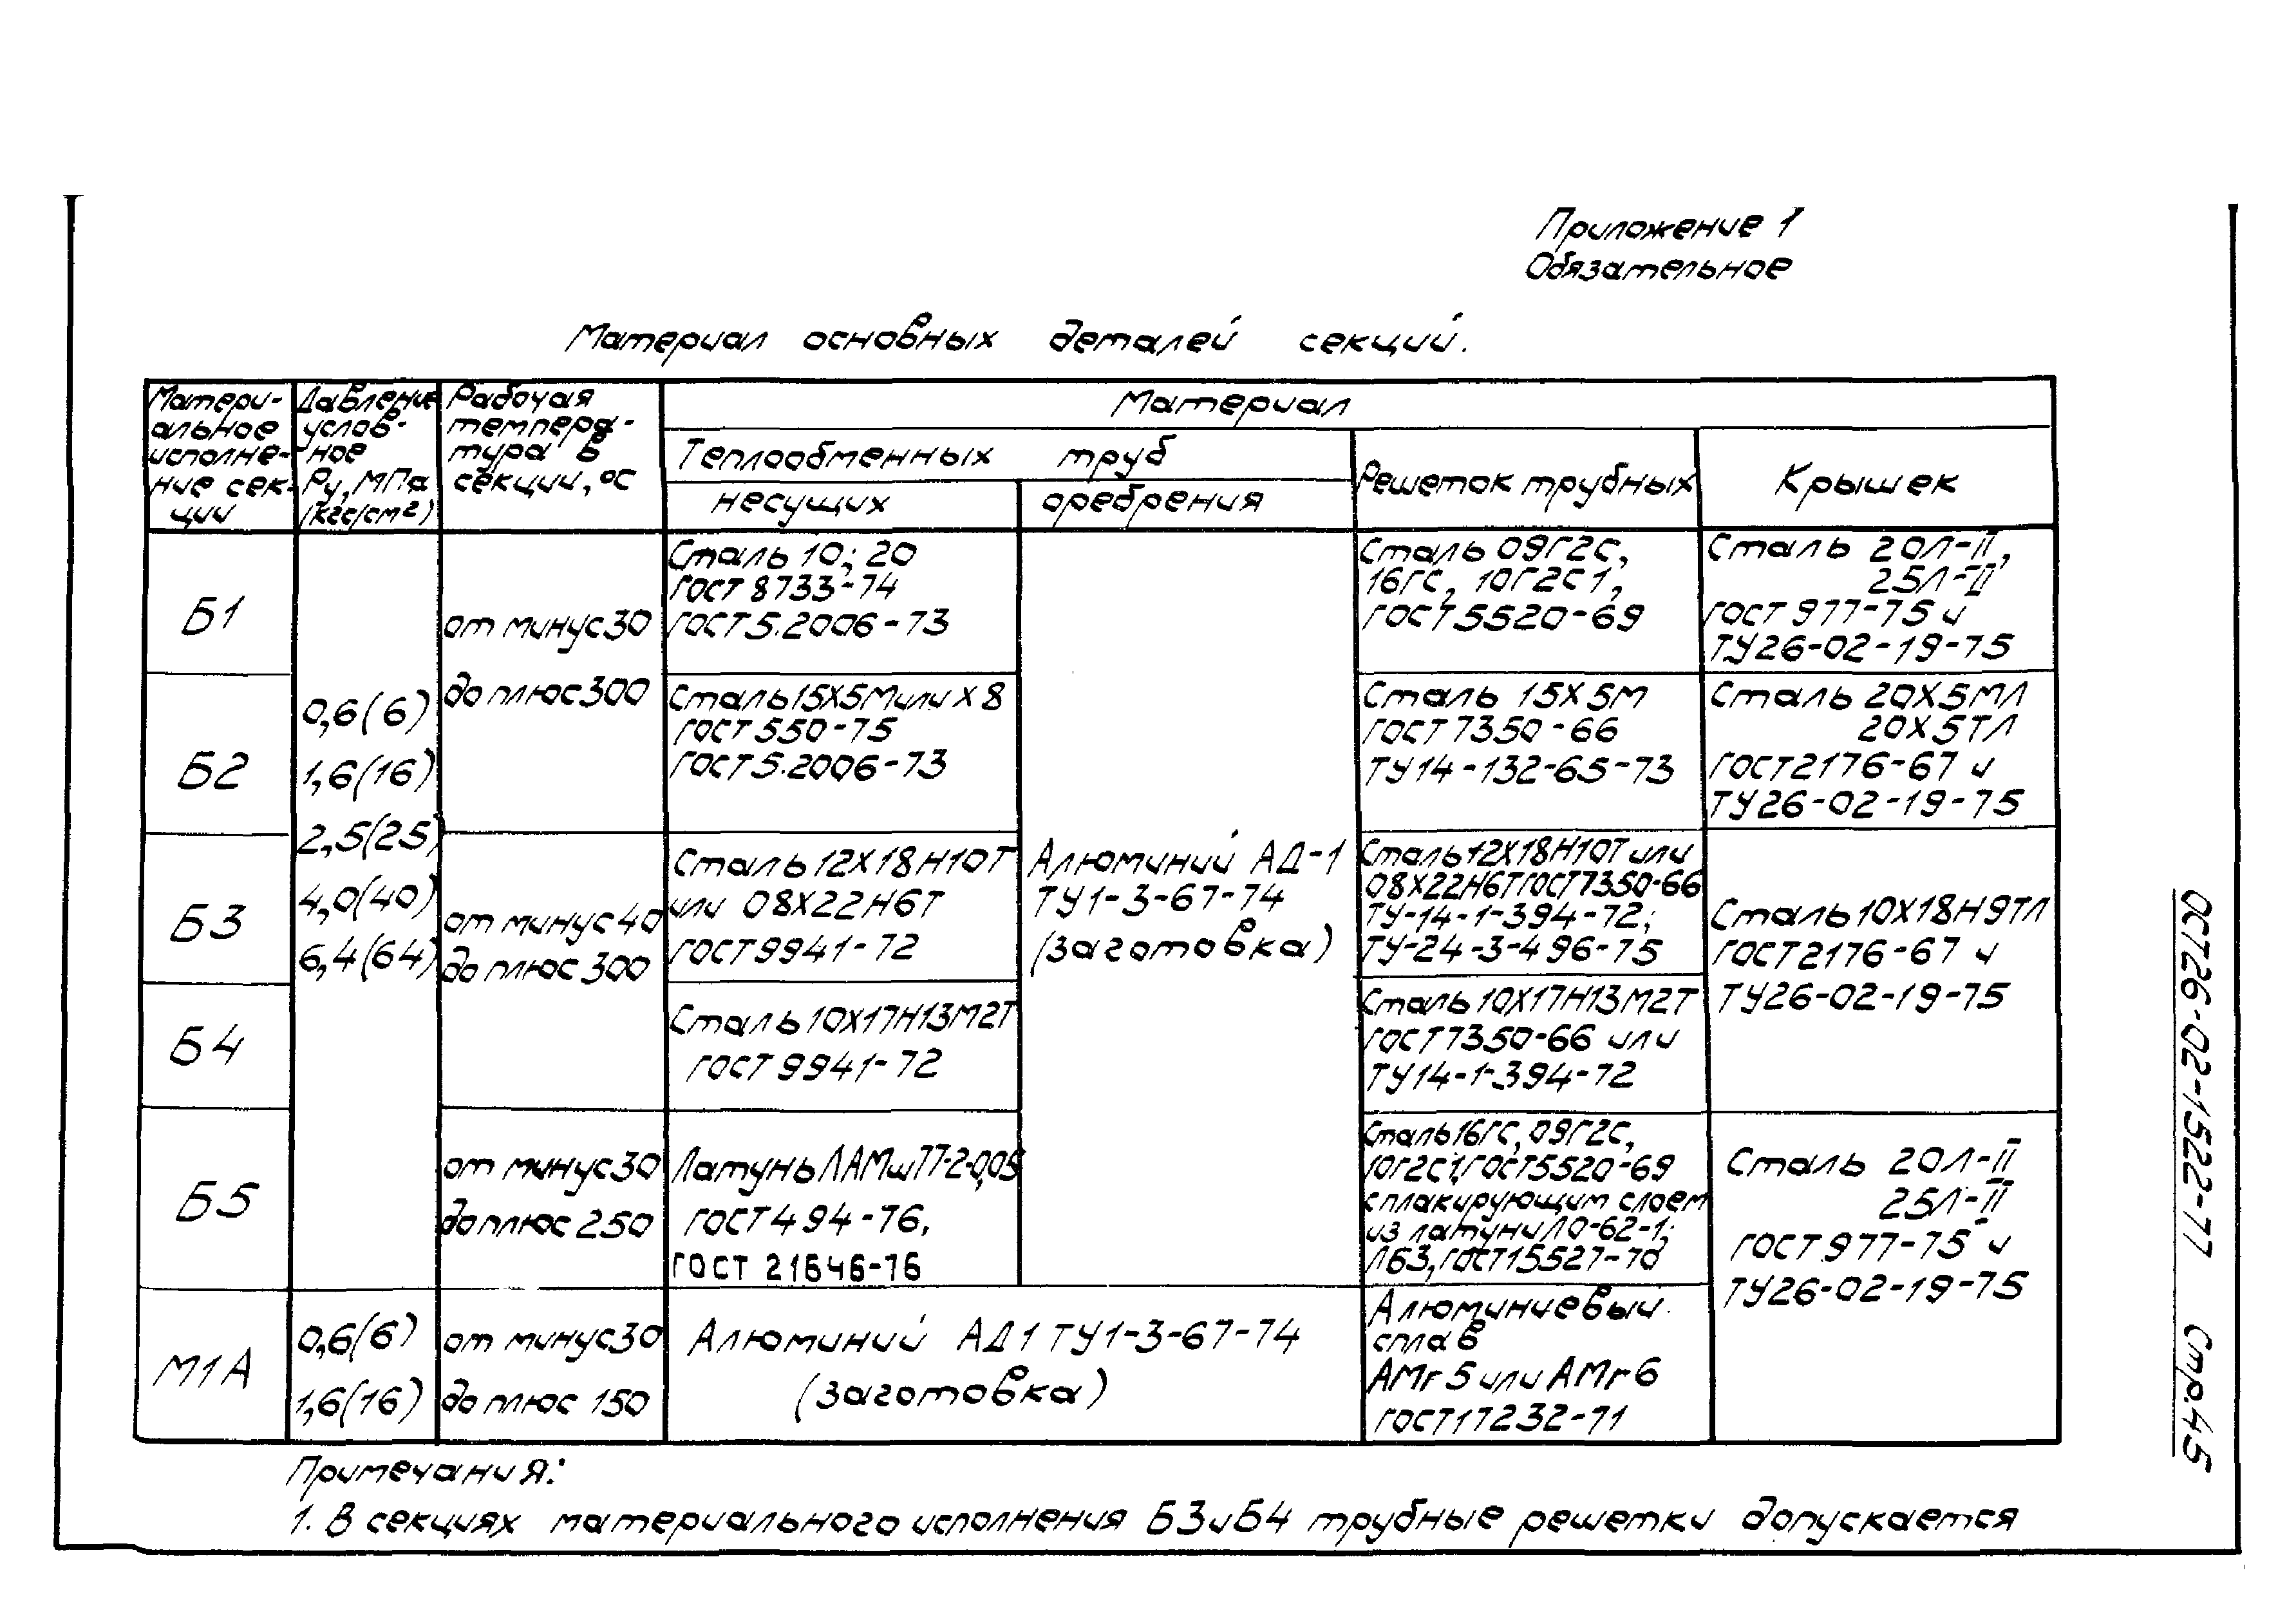 Приложение 1
Обязательное
Материал основных деталей секций.
Матери-
альное
исполне-
ние сек-
ции
Давление
услов-
ное
Ру, МПа
(кгс/см²)
Рабочая
темпера-
тура в
секции, °С
Материал
Теплообменных труб
несущих
оребрения
Решеток трубных
Крышек
Б1
от минус 30
Сталь 10; 20
ГОСТ 8733-74
ГОСТ 5.2006-73
Сталь 09Г2С,
16ГС, 10Г2С1,
ГОСТ 5520-69
Сталь 20Л-II,
25Л-II
ГОСТ 977-75 и
ТУ26-02-19-75
Б2
0,6(6)
1,6(16)
2,5(25)
4,0(40)
6,4(64)
до плюс 300
Сталь 15Х5М или Х8
ГОСТ 550-75
ГОСТ 5.2006-73
Сталь 15Х5М
ГОСТ 7350-66
ТУ14-132-65-73
Сталь 20Х5МЛ
20Х5ТЛ
ГОСТ 2176-67 и
ТУ26-02-19-75
Б3
от минус 40
до плюс 300
Сталь 12Х18Н10Т
или 08Х22Н6Т
ГОСТ 9941-72
Алюминий АД-1
ТУ1-3-67-74
(заготовка)
Сталь 12Х18Н10Т или
08Х22Н6Т ГОСТ 7350-66
ТУ-14-1-394-72;
ТУ-24-3-496-75
Сталь 10Х18Н9ТЛ
ГОСТ 2176-67 и
ТУ26-02-19-75
Б4
Сталь 10Х17Н13М2Т
ГОСТ 9941-72
Сталь 10Х17Н13М2Т
ГОСТ 7350-66 или
ТУ14-1-394-72
Б5
от минус 30
до плюс 250
Латунь ЛАМш77-2-0,05
ГОСТ 494-76,
ГОСТ 21646-76
Сталь 16ГС, 09Г2С,
10Г2С1, ГОСТ 5520-69
с плакирующим слоем
из латуни ЛО-62-1;
Л63, ГОСТ 15527-70
Сталь 20Л-II
25Л-II
ГОСТ 977-75 и
ТУ26-02-19-75
М1А
0,6(6)
1,6(16)
от минус 30
до плюс 150
Алюминий АД1 ТУ1-3-67-74
(заготовка)
Алюминиевый
сплав
АМг5 или АМг6
ГОСТ 17232-71
Примечания:
1. В секциях материального исполнения Б3 и Б4 трубные решетки допускается
ОСТ26-02-1522-77 Стр.45